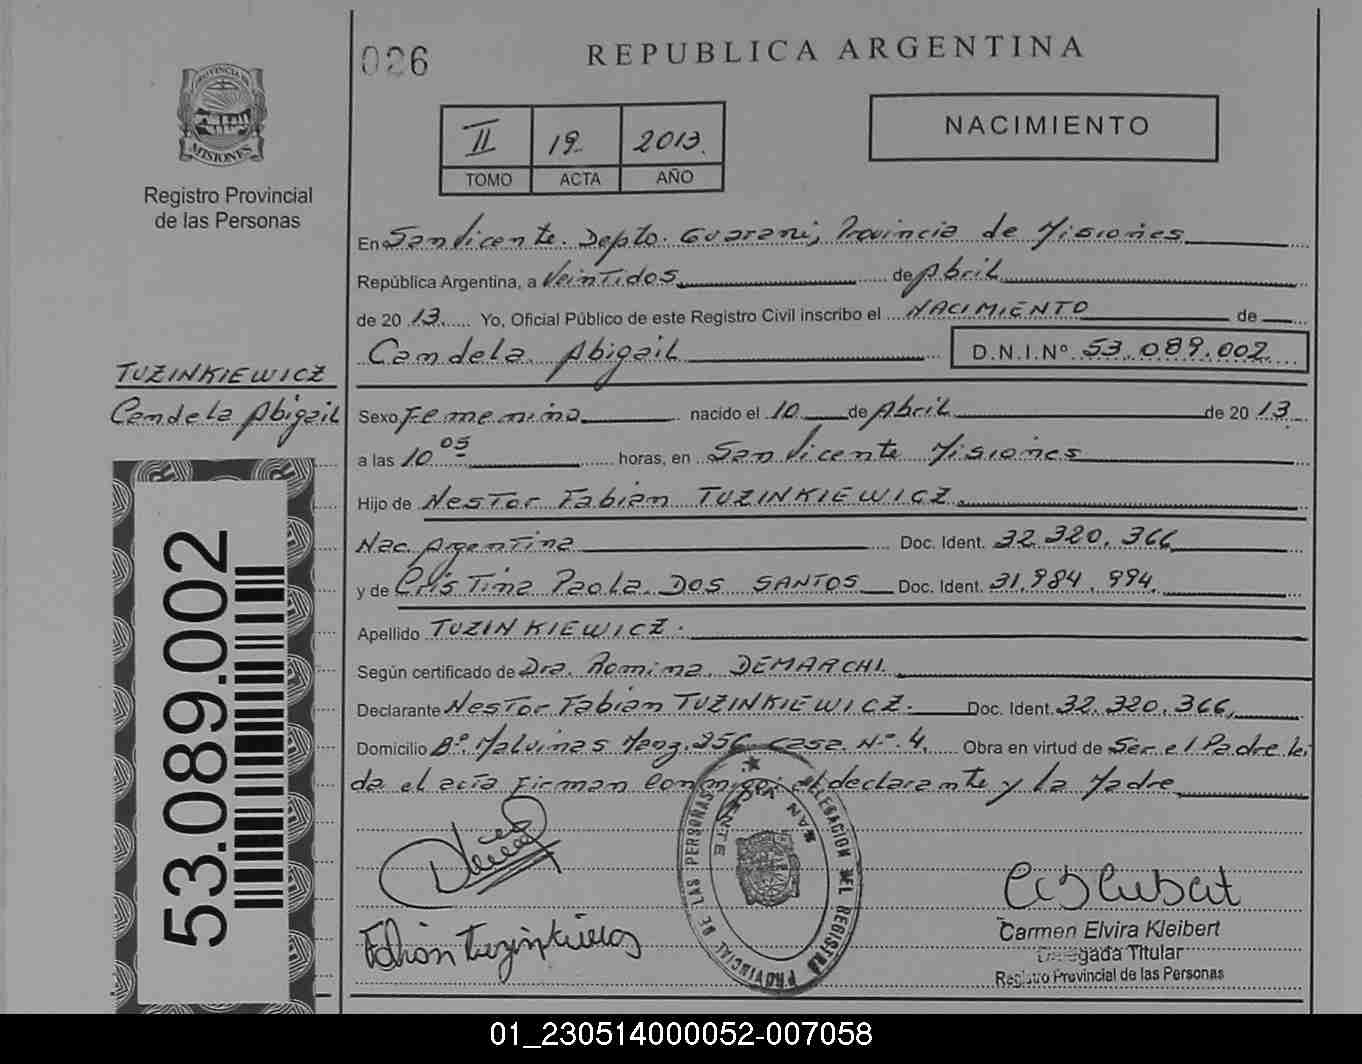 026
REPUBLICA ARGENTINA
PROVINCIA DE
MISIONES
Registro Provincial
de las Personas
II 19 2013
TOMO ACTA AÑO
NACIMIENTO
En San Vicente. Depto. Guarani, Provincia de Misiones
República Argentina, a Veintidos de Abril
de 2013 Yo, Oficial Público de este Registro Civil inscribo el NACIMIENTO de
Candela Abigail D.N.I.Nº 53.089.002
TUZINKIEWICZ
Candela Abigail
Sexo Femenino nacido el 10 de Abril de 2013
a las 10 05 horas, en San Vicente Misiones
Hijo de Nestor Fabian TUZINKIEWICZ
Nac. Argentina Doc. Ident. 32.320.366
y de Cristina Paola DOS SANTOS Doc. Ident. 31.984.994
Apellido TUZINKIEWICZ
Según certificado de Dra. Romina DEMARCHI
Declarante Nestor Fabian TUZINKIEWICZ Doc. Ident. 32.320.366
Domicilio Bº Malvinas Manz. 256 casa Nº 4 Obra en virtud de Ser el Padre lei
da el acta Firman Conmigo el declarante y la Madre
53.089.002
DELEGACION DEL REGISTRO PROVINCIAL DE LAS PERSONAS
SAN VICENTE
Carmen Elvira Kleibert
Delegada Titular
Registro Provincial de las Personas
01_230514000052-007058